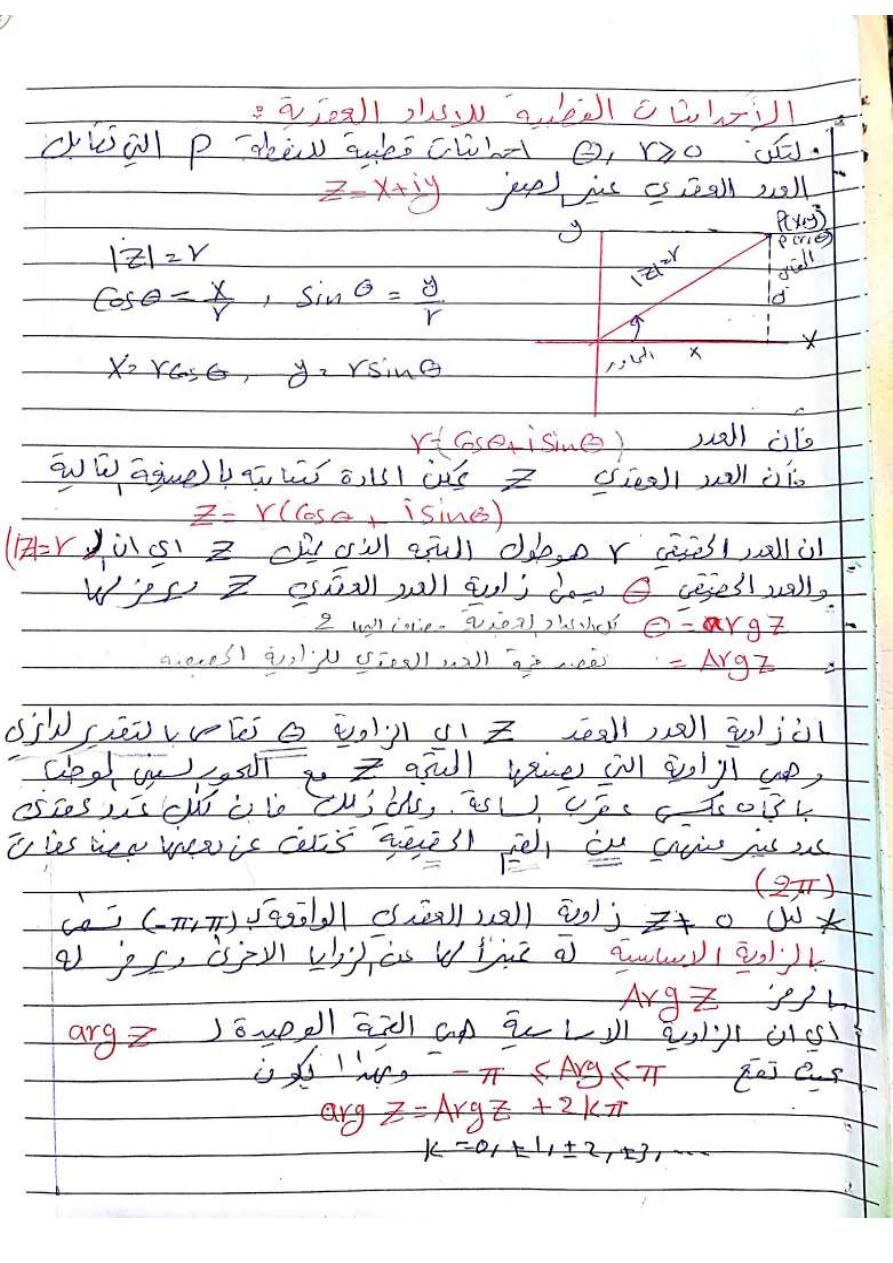 الأحداثيات القطبية للاعداد العقدية :
• لتكن θ, r≥0 احداثيات قطبية للنقطة P التي تقابل
العدد العقدي غير الصفر Z=x+iy
y
P(x,y)
P(r,θ)
المقابل
|Z|=r
y
x
x
المجاور
|Z|=r
Cosθ = x/r , Sinθ = y/r
x=rCosθ, y=rsinθ
فان العدد r(Cosθ+iSinθ)
فأن العدد العقدي Z يمكن اعادة كتابته بالصيغة التالية
Z= r(Cosθ + iSinθ)
ان العدد الحقيقي r هو طول المتجه الذي يمثل Z اي ان (|Z|=r
والعدد الحقيقي θ يسمى زاوية العدد العقدي Z ويرمز لها
θ = argz كل الاعداد العقدية مضاف اليها 2
= Argz نقصد قيمة العدد العقدي للزاوية الحقيقية
ان زاوية العدد العقد Z اي الزاوية θ تقاس بالتقدير الدائري
وهي الزاوية التي يصنعها المتجه Z مع المحور السيني الموجب
باتجاه عكس عقرب الساعة. وعلى ذلك فان لكل عدد عقدي
عدد غير منتهي من القيم الحقيقية تختلف عن بعضها بمضاعفات
(2π)
* لكل Z≠0 زاوية العدد العقدي الواقعة بـ (-π,π) تسمى
بالزاوية الاساسية له تميزأ لها عن الزوايا الاخرى ويرمز له
بالرمز ArgZ
اي ان الزاوية الاساسية هي القيمة الوحيدة لـ argz
بحيث تقع -π ≤Arg≤π وبهذا يكون
arg z=Argz +2kπ
k=0,±1,±2,±3,...